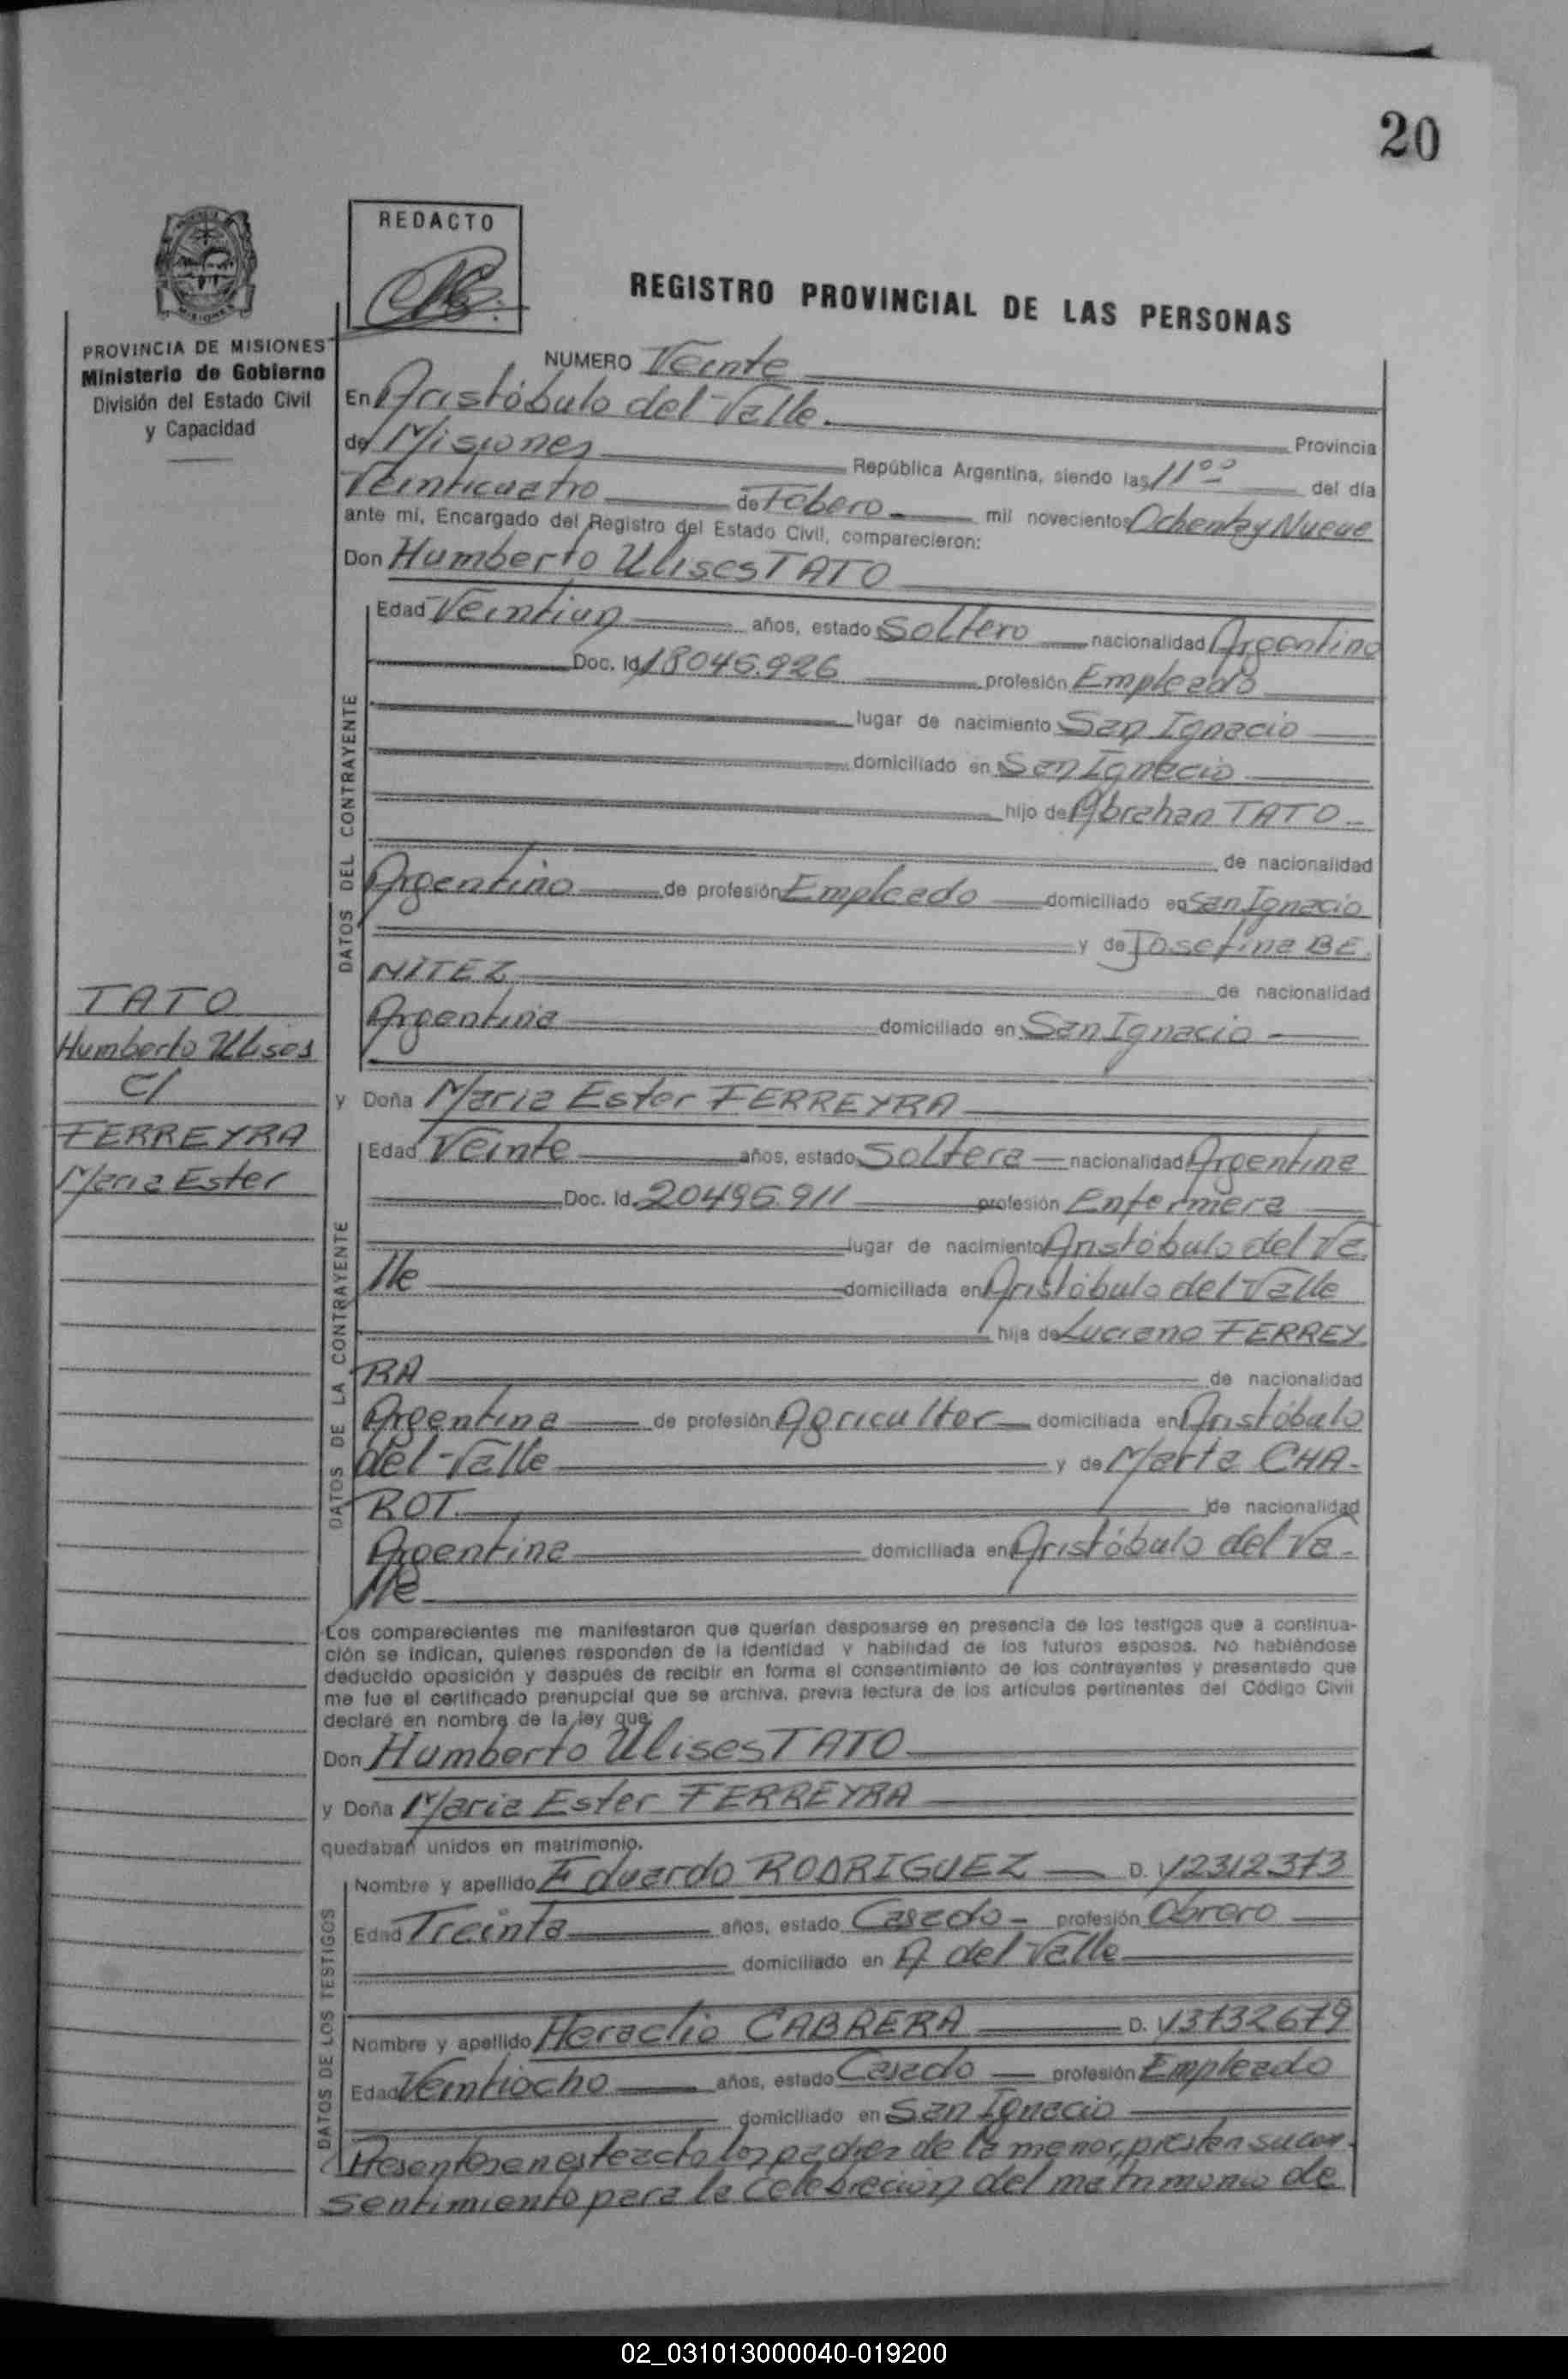 20
REDACTO
REGISTRO PROVINCIAL DE LAS PERSONAS
MISIONES
PROVINCIA DE MISIONES
Ministerio de Gobierno
División del Estado Civil
y Capacidad
TATO
Humberto Ulises
C/
FERREYRA
Maria Ester
NUMERO Veinte
En Aristóbulo del Valle Provincia
de Misiones República Argentina, siendo las 11°° del día
Veinticuatro de Febero mil novecientos Ochenta y Nueve
ante mí, Encargado del Registro del Estado Civil, comparecieron:
Don Humberto Ulises TATO
DATOS DEL CONTRAYENTE
Edad Veintiun años, estado Soltero nacionalidad Argentino
Doc. Id. 18045.926 profesión Empleado
lugar de nacimiento San Ignacio
domiciliado en San Ignacio
hijo de Abrahan TATO
de nacionalidad
Argentino de profesión Empleado domiciliado en San Ignacio
y de Josefina BE
NITEZ de nacionalidad
Argentina domiciliado en San Ignacio
y Doña Maria Ester FERREYRA
DATOS DE LA CONTRAYENTE
Edad Veinte años, estado Soltera nacionalidad Argentina
Doc. Id. 20495.911 profesión Enfermera
lugar de nacimiento Aristóbulo del Va
lle domiciliada en Aristóbulo del Valle
hija de Luciano FERREY
RA de nacionalidad
Argentina de profesión Agricultor domiciliada en Aristóbulo
del Valle y de Marta CHA-
ROT. de nacionalidad
Argentina domiciliada en Aristóbulo del Va-
lle
Los comparecientes me manifestaron que querían desposarse en presencia de los testigos que a continua-
ción se indican, quienes responden de la identidad y habilidad de los futuros esposos. No habiéndose
deducido oposición y después de recibir en forma el consentimiento de los contrayentes y presentado que
me fue el certificado prenupcial que se archiva, previa lectura de los artículos pertinentes del Código Civil
declaré en nombre de la ley que:
Don Humberto Ulises TATO
y Doña Maria Ester FERREYRA
quedaban unidos en matrimonio.
DATOS DE LOS TESTIGOS
Nombre y apellido Eduardo RODRIGUEZ D. I. 12312373
Edad Treinta años, estado Casado - profesión Obrero
domiciliado en A del Valle
Nombre y apellido Heraclio CABRERA D. I. 13732679
Edad Veintiocho años, estado Casado profesión Empleado
domiciliado en San Ignacio
Presentes en este acto los padres de la menor, prestan su con-
sentimiento para la celebración del matrimonio de
02_031013000040-019200